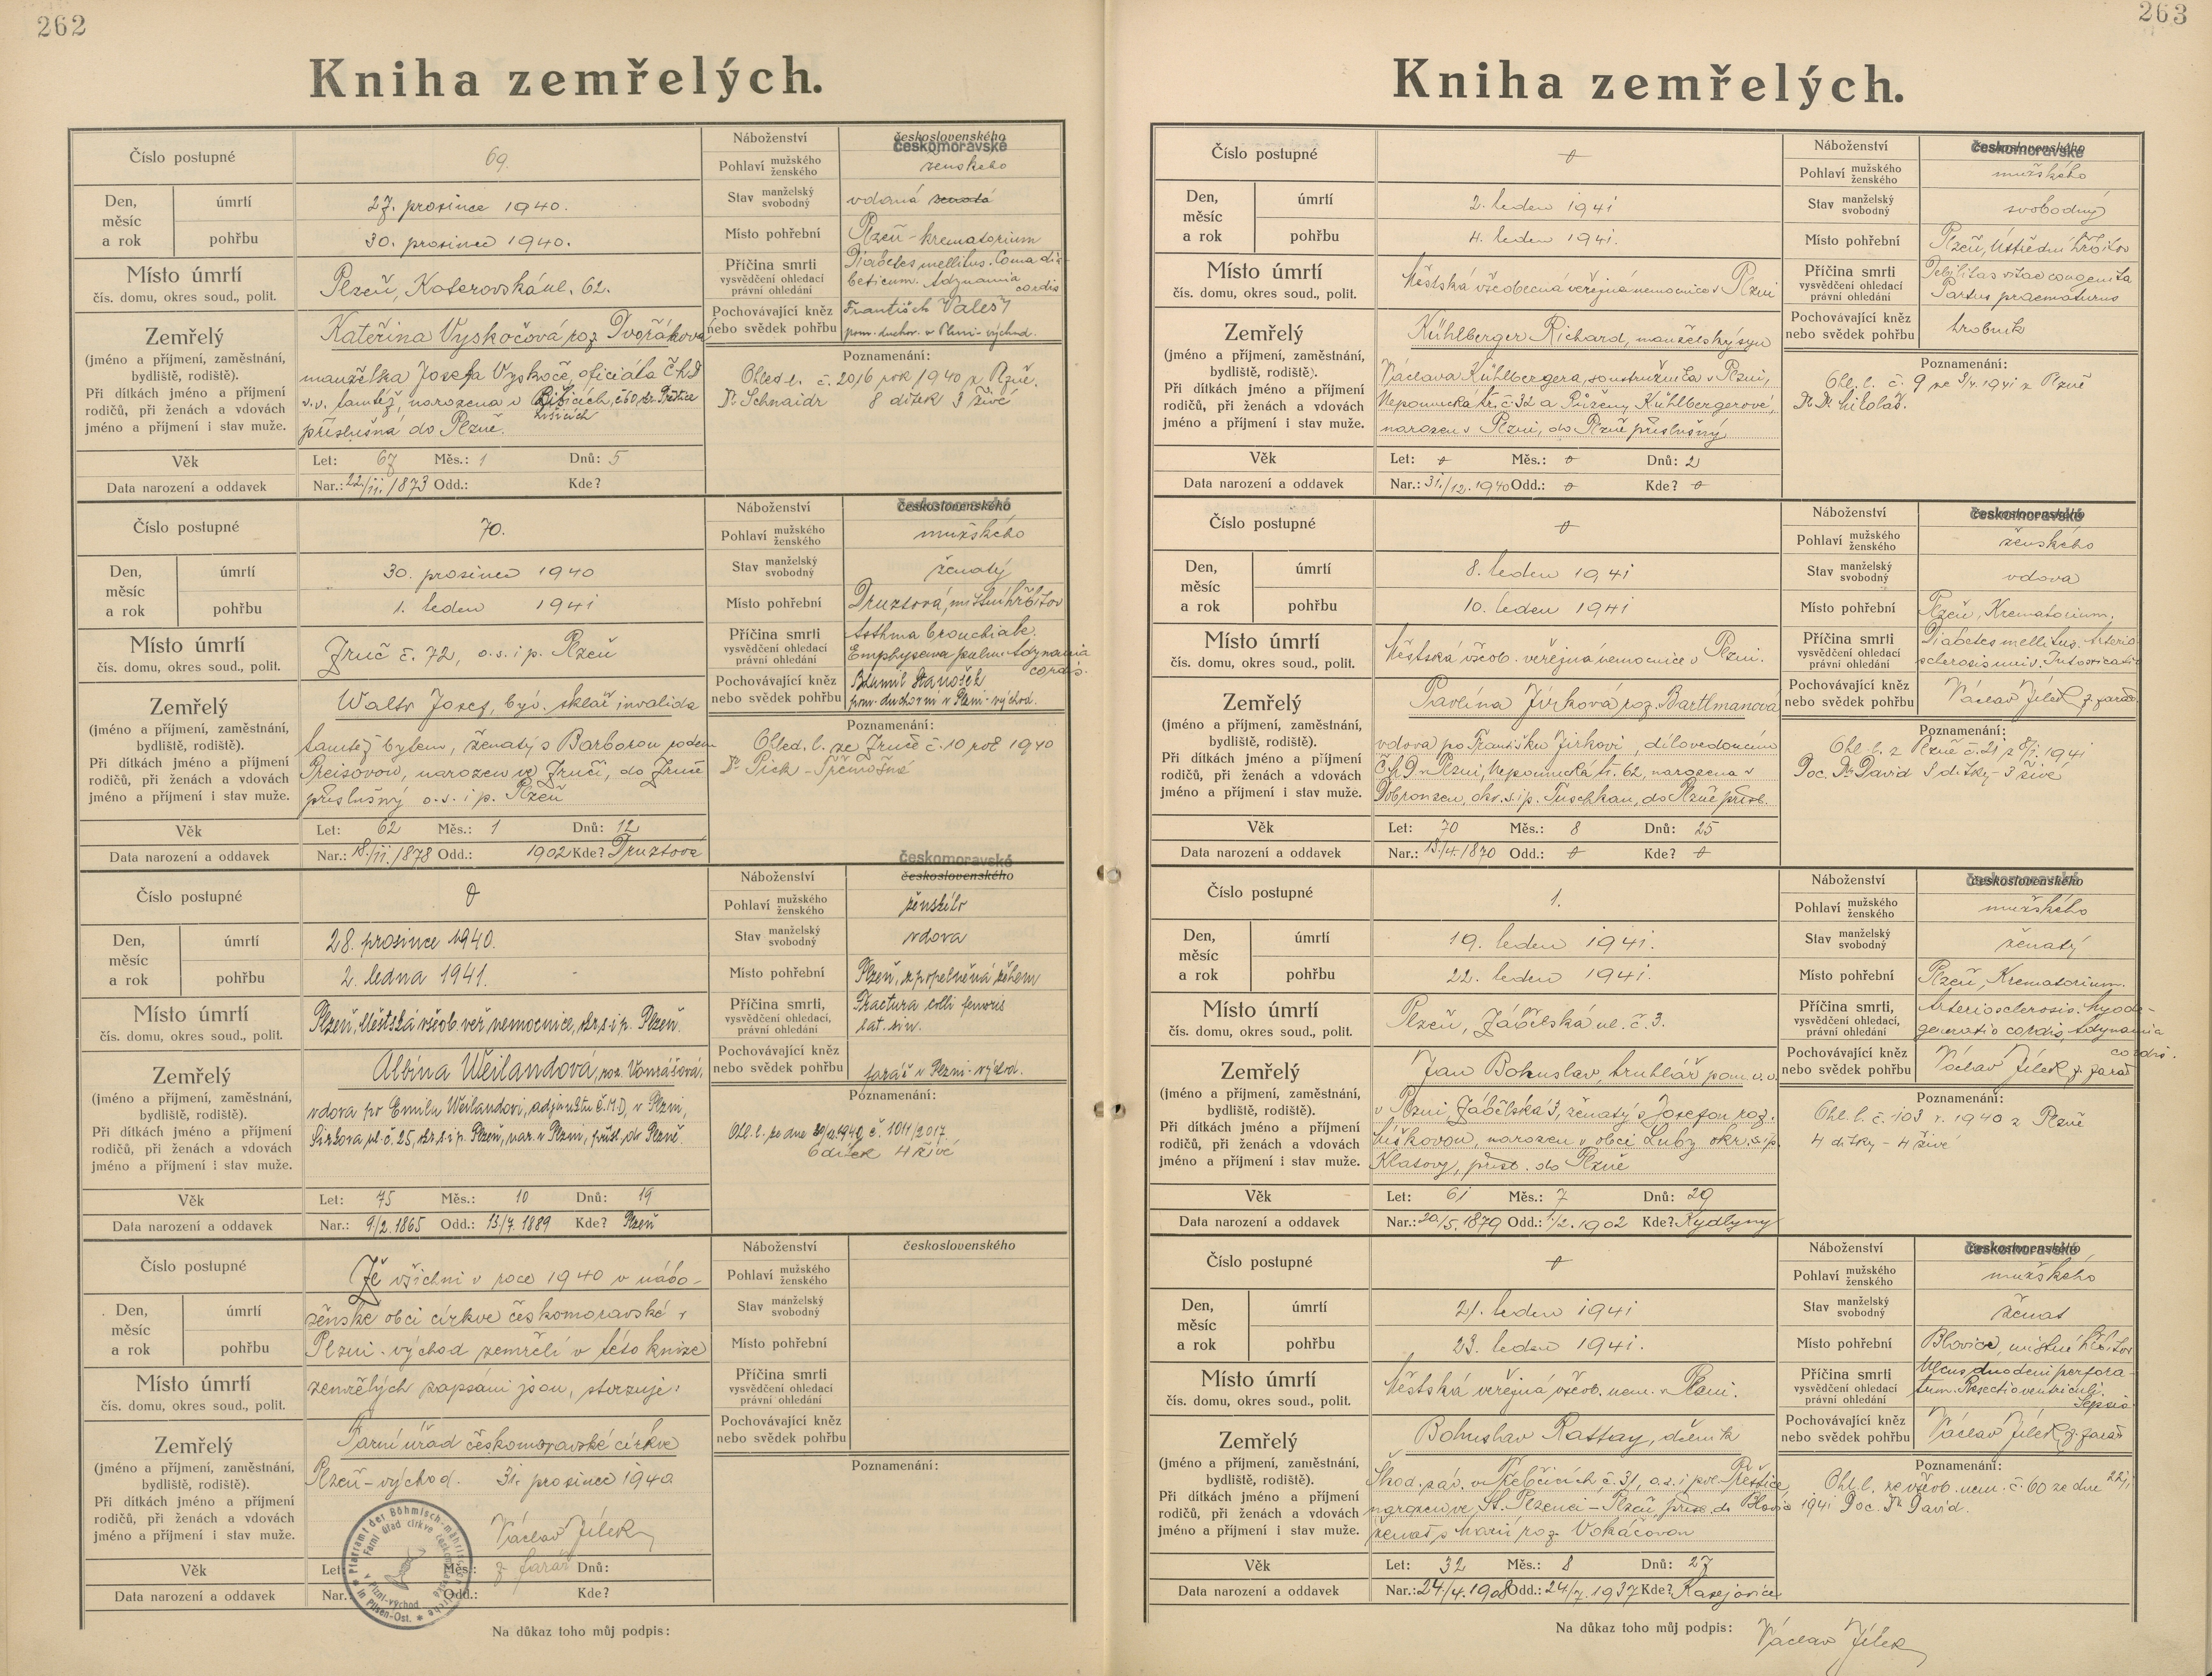 262
Kniha zemřelých.
Číslo postupné
69.
Náboženství
československého
českomoravské
Pohlaví mužského ženského
ženského
Den, měsíc a rok
úmrtí
27. prosince 1940.
Stav manželský svobodný
vdaná
pohřbu
30. prosince 1940.
Místo pohřební
Plzeň - krematorium
Místo úmrtí
čís. domu, okres soud., polit.
Plzeň, Koterovská ul. 62.
Příčina smrti
vysvědčení ohledací
právní ohledání
Diabetes mellitus. Coma dia-
beticum. Adynamia
cordis
Pochovávající kněz
nebo svědek pohřbu
František Valeš
pom. duchov. v Plzni-východ.
Zemřelý
(jméno a příjmení, zaměstnání,
bydliště, rodiště).
Při dítkách jméno a příjmení
rodičů, při ženách a vdovách
jméno a příjmení i stav muže.
Kateřina Vyskočová roz. Dvořáková
manželka Josefa Vyskoče, oficiála ČMD
v.v. tamtéž, narozena v
příslušná do Plzně.
Poznamenání:
Ohled. l. č. 2016 rok 1940 z Plzně.
Dr Schnaidr 8 dítek 3 živé
Věk
Let: 67 Měs.: 1 Dnů: 5
Data narození a oddavek
Nar.: 22./11. 1873 Odd.: Kde?
Číslo postupné
70.
Náboženství
československého
českomoravské
Pohlaví mužského ženského
mužského
Den, měsíc a rok
úmrtí
30. prosince 1940
Stav manželský svobodný
ženatý
pohřbu
1. leden 1941
Místo pohřební
Druztová, místní hřbitov
Místo úmrtí
čís. domu, okres soud., polit.
Zruč č. 72, o.s. i p. Plzeň
Příčina smrti
vysvědčení ohledací
právní ohledání
Asthma bronchiale.
Emphysema pulm. Adynamia
cordis.
Pochovávající kněz
nebo svědek pohřbu
Bohumil Stanošek
pom. duchovní v Plzni-východ.
Zemřelý
(jméno a příjmení, zaměstnání,
bydliště, rodiště).
Při dítkách jméno a příjmení
rodičů, při ženách a vdovách
jméno a příjmení i stav muže.
Walter Josef, býv. sklář invalida
tamtéž bytem, ženatý s Barborou rozem
Preisovou, narozen ve Zruči, do Zruče
příslušný o.s. i p. Plzeň
Poznamenání:
Ohled. l. ze Zruče č. 10 rok 1940
Dr Pick - Třemošné
Věk
Let: 62 Měs.: 1 Dnů: 12
Data narození a oddavek
Nar.: 18./11. 1878 Odd.: 1902 Kde? Druztová
Číslo postupné
Náboženství
českomoravské
československého
Pohlaví mužského ženského
ženského
Den, měsíc a rok
úmrtí
28. prosince 1940.
Stav manželský svobodný
vdova
pohřbu
2. ledna 1941.
Místo pohřební
Plzeň, zpopelněná žehem
Místo úmrtí
čís. domu, okres soud., polit.
Plzeň, Městská všeob. veř. nemocnice, okr. s. i p. Plzeň.
Příčina smrti,
vysvědčení ohledací,
právní ohledání
Fractura colli femoris
lat. sin.
Pochovávající kněz
nebo svědek pohřbu
farář v Plzni-východ.
Zemřelý
(jméno a příjmení, zaměstnání,
bydliště, rodiště).
Při dítkách jméno a příjmení
rodičů, při ženách a vdovách
jméno a příjmení i stav muže.
Albína Weilandová, roz. Vonrášová,
vdova po Emilu Weilandovi, adjunktu Č.M.D. v Plzni,
Sirkova ul. č. 25, okr. s. i p. Plzeň, nar. v Plzni, přísl. do Plzně.
Poznamenání:
Ohl. l. ze dne 1940 č. 1011/2017.
6 dítek 4 živé
Věk
Let: 75 Měs.: 10 Dnů: 19
Data narození a oddavek
Nar.: 9/2. 1865 Odd.: 13/7. 1889 Kde? Plzeň
Číslo postupné
Že všichni v roce 1940 v nábo-
Náboženství
československého
Pohlaví mužského ženského
Den, měsíc a rok
úmrtí
ženské obci církve českomoravské v
Stav manželský svobodný
pohřbu
Plzni-východ zemřelí v této knize
Místo pohřební
Místo úmrtí
čís. domu, okres soud., polit.
zemřelých zapsáni jsou, stvrzuje:
Příčina smrti
vysvědčení ohledací
právní ohledání
Pochovávající kněz
nebo svědek pohřbu
Zemřelý
(jméno a příjmení, zaměstnání,
bydliště, rodiště).
Při dítkách jméno a příjmení
rodičů, při ženách a vdovách
jméno a příjmení i stav muže.
Farní úřad českomoravské církve
Plzeň-východ. 31. prosince 1940
Václav Jílek
z. farář
Pfarramt der Böhmisch-mährischen Kirche in Pilsen-Ost.
Farní úřad církve českomoravské v Plzni-východ
Poznamenání:
Věk
Let: Měs.: Dnů:
Data narození a oddavek
Nar.: Odd.: Kde?
Na důkaz toho můj podpis:
263
Kniha zemřelých.
Číslo postupné
Náboženství
československého
českomoravské
Pohlaví mužského ženského
mužského
Den, měsíc a rok
úmrtí
2. leden 1941
Stav manželský svobodný
svobodný
pohřbu
4. leden 1941.
Místo pohřební
Plzeň, Ústřední hřbitov
Místo úmrtí
čís. domu, okres soud., polit.
Městská všeobecná veřejná nemocnice v Plzni
Příčina smrti
vysvědčení ohledací
právní ohledání
Debilitas vitae congenita
Partus praematurus
Pochovávající kněz
nebo svědek pohřbu
hrobník
Zemřelý
(jméno a příjmení, zaměstnání,
bydliště, rodiště).
Při dítkách jméno a příjmení
rodičů, při ženách a vdovách
jméno a příjmení i stav muže.
Kühlberger Richard, manželský syn
Václava Kühlbergera, soustružníka v Plzni,
Nepomucká tř. č. 32 a Růženy Kühlbergerové,
narozen v Plzni, do Plzně příslušný
Poznamenání:
Ohl. l. č. 9 ze 3/1. 1941 z Plzně
Dr. Dr. Mikoláš.
Věk
Let: Měs.: Dnů: 2
Data narození a oddavek
Nar.: 31./12. 1940 Odd.: Kde?
Číslo postupné
Náboženství
československého
českomoravské
Pohlaví mužského ženského
ženského
Den, měsíc a rok
úmrtí
8. leden 1941
Stav manželský svobodný
vdova
pohřbu
10. leden 1941
Místo pohřební
Plzeň, Krematorium.
Místo úmrtí
čís. domu, okres soud., polit.
Městská všeob. veřejná nemocnice v Plzni.
Příčina smrti
vysvědčení ohledací
právní ohledání
Diabetes mellitus. Arterio
sclerosis univ. Intoxicatio
Pochovávající kněz
nebo svědek pohřbu
Václav Jílek z. farář
Zemřelý
(jméno a příjmení, zaměstnání,
bydliště, rodiště).
Při dítkách jméno a příjmení
rodičů, při ženách a vdovách
jméno a příjmení i stav muže.
Pavlína Jírková roz. Bartlmanová
vdova po Františku Jírkovi, dílovedoucím
ČMD v Plzni, Nepomucká tř. 62, narozena v
Dobronzen, okr. s. i p. Tuschkau, do Plzně přísl.
Poznamenání:
Ohl. l. z Plzně č. 21 z 8/1. 1941
Doc. Dr David 8 dítky - 3 živé
Věk
Let: 70 Měs.: 8 Dnů: 25
Data narození a oddavek
Nar.: 13/4. 1870 Odd.: Kde?
Číslo postupné
1.
Náboženství
československého
českomoravské
Pohlaví mužského ženského
mužského
Den, měsíc a rok
úmrtí
19. leden 1941.
Stav manželský svobodný
ženatý
pohřbu
22. leden 1941.
Místo pohřební
Plzeň, Krematorium.
Místo úmrtí
čís. domu, okres soud., polit.
Plzeň, Zábělská ul. č. 3.
Příčina smrti,
vysvědčení ohledací,
právní ohledání
Arteriosclerosis. Myode-
generatio cordis, Adynamia
cordis.
Pochovávající kněz
nebo svědek pohřbu
Václav Jílek z. farář
Zemřelý
(jméno a příjmení, zaměstnání,
bydliště, rodiště).
Při dítkách jméno a příjmení
rodičů, při ženách a vdovách
jméno a příjmení i stav muže.
Jan Bohuslav, truhlář pom. v.v.
v Plzni, Zábělská 3, ženatý s Josefou roz.
Liškovou, narozen v obci Luby okr. s. i p.
Klatovy, přísl. do Plzně
Poznamenání:
Ohl. l. č. 103 r. 1940 z Plzně
4 dítky - 4 živé
Věk
Let: 61 Měs.: 7 Dnů: 29
Data narození a oddavek
Nar.: 20/5. 1879 Odd.: 1/2. 1902 Kde? Kydlyny
Číslo postupné
Náboženství
československého
českomoravské
Pohlaví mužského ženského
mužského
Den, měsíc a rok
úmrtí
21. leden 1941
Stav manželský svobodný
ženat
pohřbu
23. leden 1941.
Místo pohřební
Blovice, místní hřbitov
Místo úmrtí
čís. domu, okres soud., polit.
Městská veřejná všeob. nem. v Plzni.
Příčina smrti
vysvědčení ohledací
právní ohledání
Ulcus duodeni perfora-
tum. Resectio ventriculi.
Sepsis
Pochovávající kněz
nebo svědek pohřbu
Václav Jílek z. farář
Zemřelý
(jméno a příjmení, zaměstnání,
bydliště, rodiště).
Při dítkách jméno a příjmení
rodičů, při ženách a vdovách
jméno a příjmení i stav muže.
Bohuslav Rattay, dělník
Škod. záv. v Řebčicích, č. 31, o.s. i pol. Přeštice,
narozen ve St. Plzenci - Plzeň, přísl. do Blovic
ženat s Marií roz. Vokáčovou
Poznamenání:
Ohl. l. ze všeob. nem. č. 60 ze dne 22/1
1941 Doc. Dr David.
Věk
Let: 32 Měs.: 8 Dnů: 27
Data narození a oddavek
Nar.: 24./4. 1908 Odd.: 24/7. 1937 Kde? Kasejovice
Na důkaz toho můj podpis: Václav Jílek